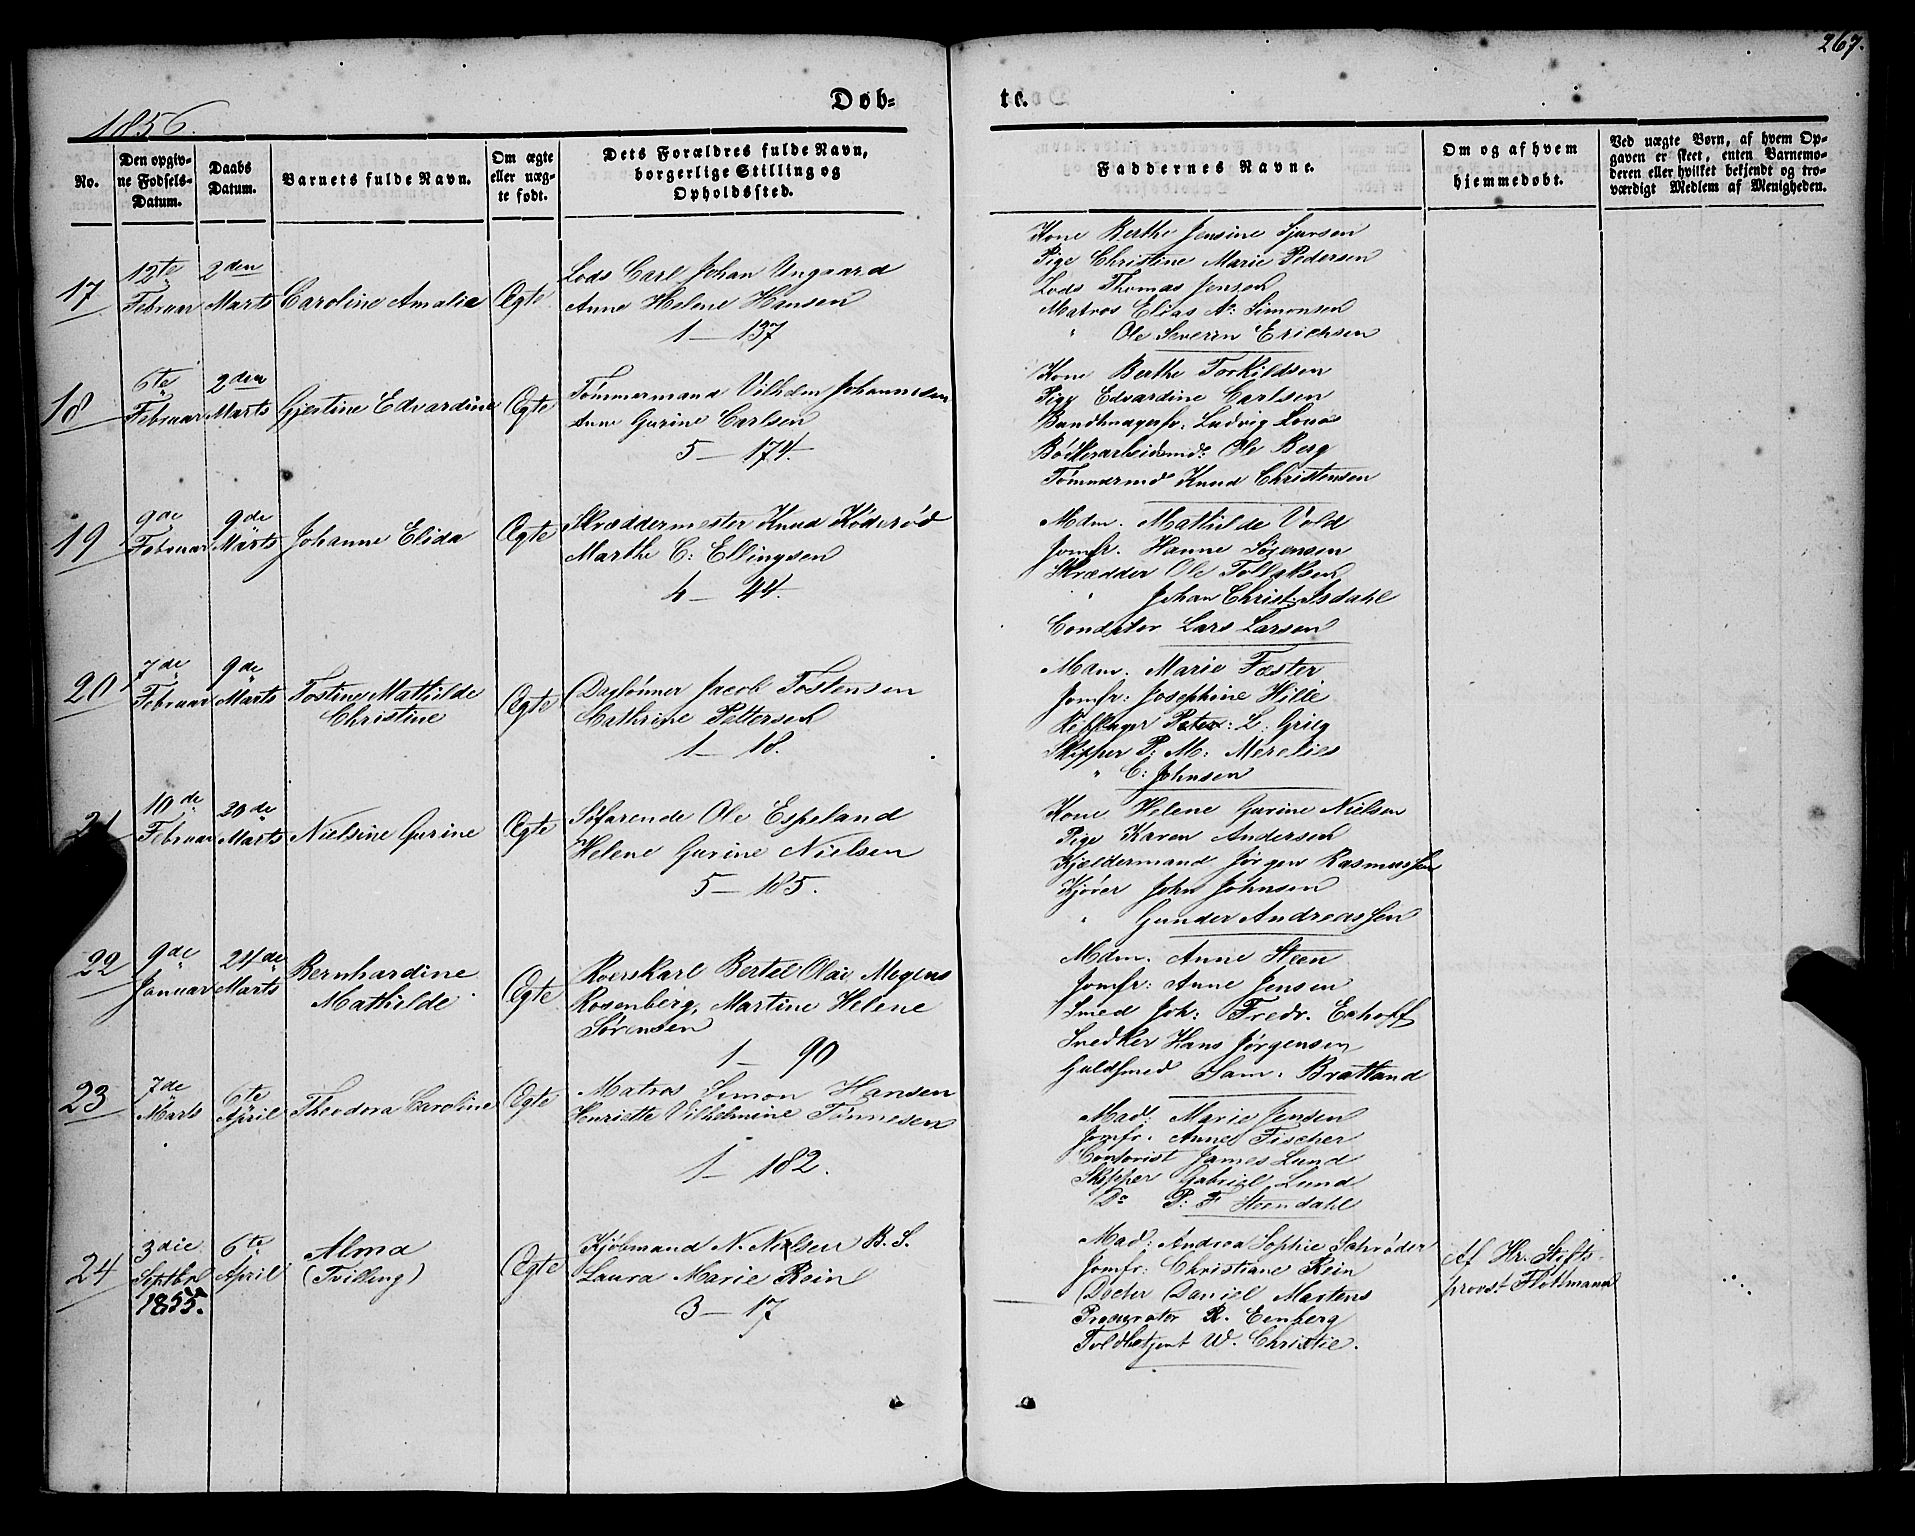 267.
1856.
Døb-
te.
No.
Den opgiv-
ne Fødsels-
Datum.
Daabs
Datum.
Barnets fulde Navn.
Om ægte
eller uæg-
te født.
Dets Forældres fulde Navn,
borgerlige Stilling og
Opholdssted.
Faddernes Navne.
Om og af hvem
hjemmedøbt.
Ved uægte Børn, af hvem Op-
gaven er skeet, enten Barnemo-
deren eller hvilket bekjendt og tro-
værdigt Medlem af Menigheden.
17
12te
Februar
2den
Marts
Caroline Amalie
Ægte
Lods Carl Johan Ungaard
Anne Helene Hansen
1 — 137
Kone Berthe Jensine Sjursen
Pige Christine Marie Pedersen
Lods Thomas Jensen
Matros Elias A: Simonsen
" Ole Severin Erichsen
18
6te
Februar
2den
Marts
Gjertine Edvardine
Ægte
Tømmermand Vilhelm Johannesen
Anne Gurine Carlsen
5 — 174.
Kone Berthe Torkildsen
Pige Edvardine Carlsen
Bundtmagersv: Ludvig Lous
Bödkerarbeidsmd: Ole Berg
Tömmermd Knud Christensen
19
9de
Februar
9de
Marts
Johanne Elida
Ægte
Skræddermester Knud Köderöd
Marthe C: Ellingsen
4 — 44.
Mdm. Mathilde Vold
Jomfr. Hanne Sørensen
Skrædder Ole Tollaksen
" Johan Christ. Isdahl
Conditor Lars Larsen
20
7de
Februar
9de
Marts
Tostine Mathilde
Christine
Ægte
Daglønner Jacob Tostensen
Cathrine Pettersen
1 — 18.
Mdm. Marie Fæster
Jomfr: Josephine Hille
Rebslager Peter: L: Grieg
Skipper P: M: Merelies
" C: Johnsen
21
10de
Februar
20de
Marts
Nielsine Gurine
Ægte
Søfarende Ole Espeland
Helene Gurine Nielsen
5 — 185.
Kone Helene Gurine Nielsen
Pige Karen Andersen
Kjældermand Jørgen Rasmussen
Kjører John Johnsen
" Gunder Andreassen
22
9de
Januar
24de
Marts
Bernhardine
Mathilde
Ægte
Roerskarl Bertel Olai Mogens
Rosenberg, Martine Helene
Sørensen
1 — 90
Mdm. Anne Steen
Jomfr: Anne Jensen
Smed Joh: Fredr. Echoff
Snedker Hans Jørgensen
Guldsmed Sam. Bratland
23
7de
Marts
6te
April
Theodora Caroline
Ægte
Matros Simon Hansen
Henriette Vilhelmine Tønnesen
1 — 182.
Mad: Marie Jensen
Jomfr. Anne Fischer
Contorist James Lund
Skipper Gabriel Lund
Do P: F Steendahl
24
3die
Septbr
1855.
6te
April
Alma
(Tvilling)
Ægte
Kjöbmand N. Nielsen B. S.
Laura Marie Rein
3 — 17
Mad: Andrea Sophie Schrøder
Jomfr: Christiane Rein
Docter Daniel Martens
Procurator R. Eenberg
Toldbetjent W. Christie.
Af Hr. Stifts-
provst Flottmann